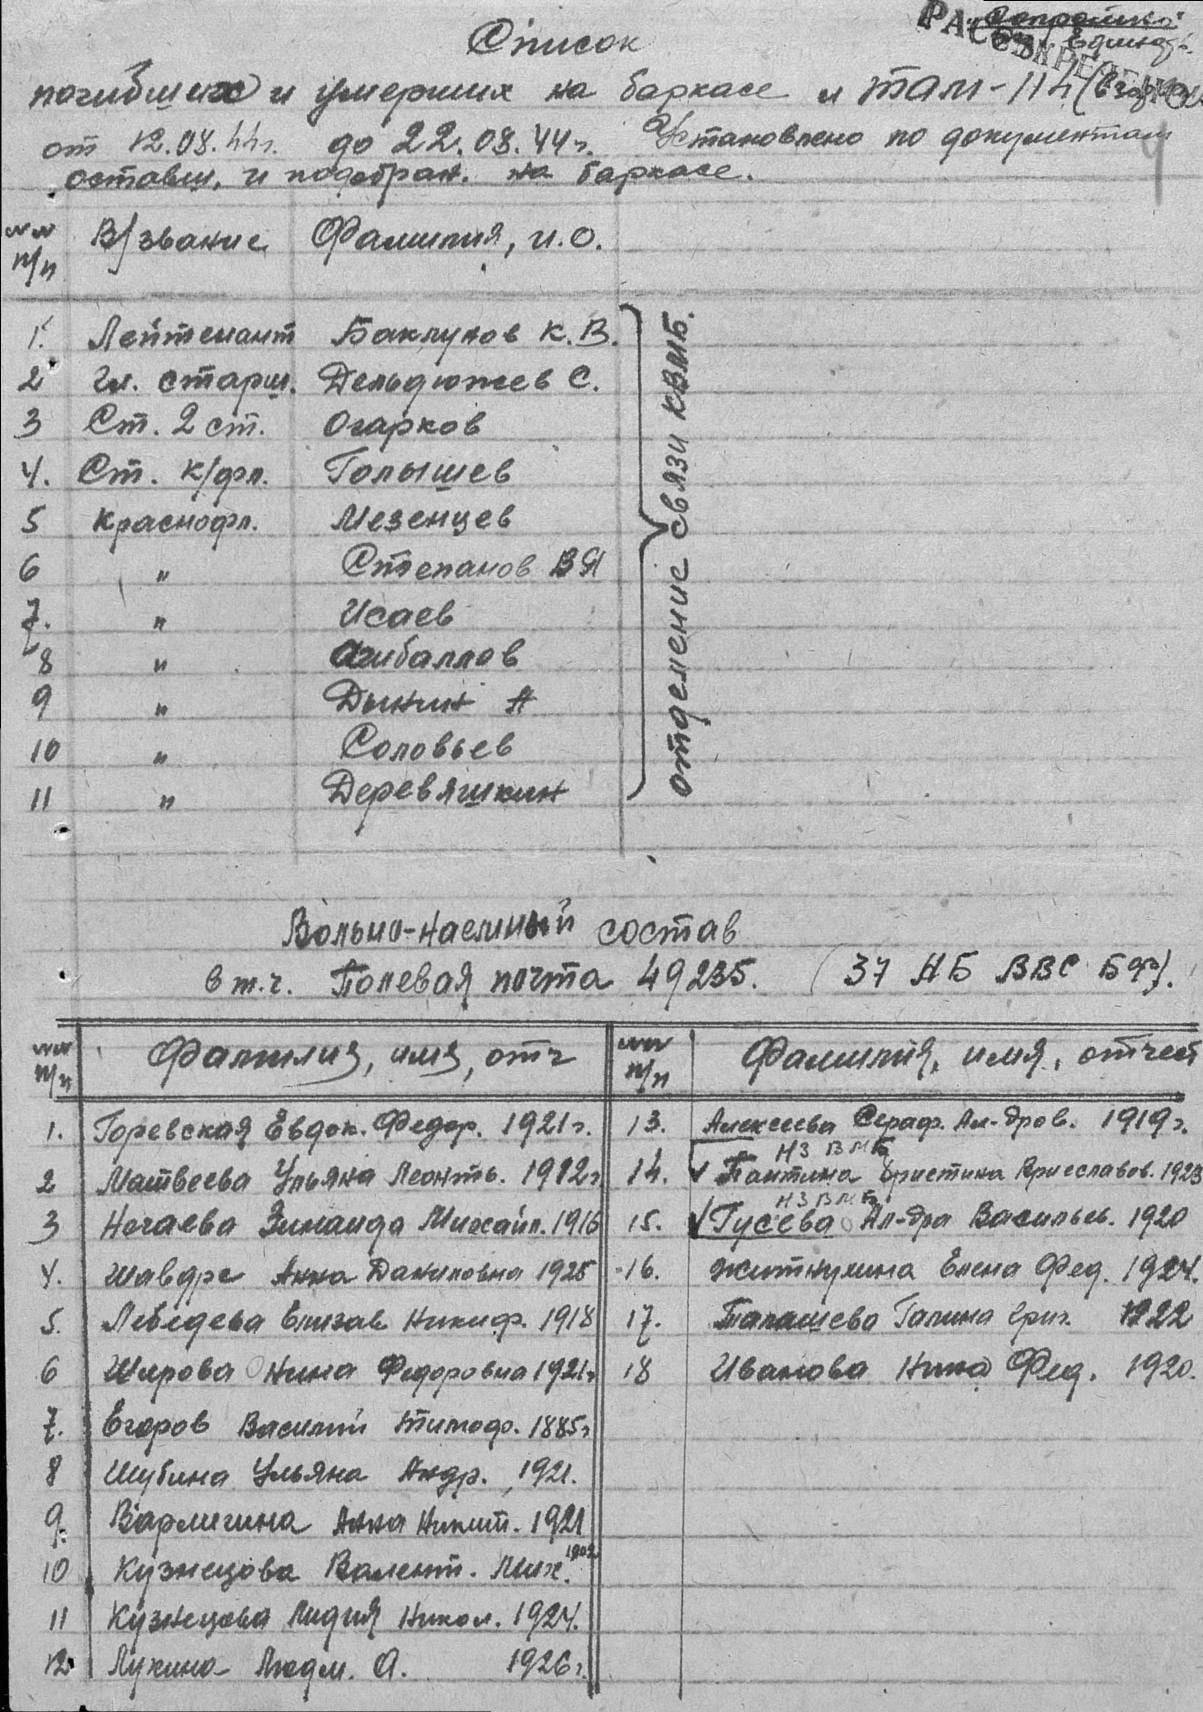 РАССЕКРЕЧЕНО
Список
погибших и умерших на баркасе и ТАМ-114
от 12.08.44г. до 22.08.44г. Установлено по документам
оставш. и подобран. на баркасе.
№№ п/п В/звание Фамилия, и.о.
1. Лейтенант Баклунов К.В.
2 Гл. старш. Дельдюжев С.
3 Ст. 2 ст. Огарков
4. Ст. к/фл. Голышев
5 Краснофл. Мезенцев
6 " Степанов В Я
7. " Исаев
8 " Ачибаллов
9 " Дынин А
10 " Соловьев
11 " Деревяшкин
отделение связи КВМБ.
Вольно-наемный состав
в т.ч. Полевая почта 49235. (37 НБ ВВС БФл).
№№ п/п Фамилия, имя, отч
1. Горевская Евдок. Федор. 1921г.
2 Матвеева Ульяна Леонть. 1912г
3 Нечаева Зинаида Михайл. 1916
4. Шавдре Анна Даниловна 1925
5. Лебедева Елизав Никиф. 1918
6 Широва Нина Федоровна 1921г
7. Егоров Василий Тимоф. 1885г
8 Шубина Ульяна Андр. 1921.
9. Вармичина Анна Никит. 1921
10 Кузнецова Валент. Мих. 1902
11 Кузнецова Лидия Никол. 1924.
12 Лукина Людм. А. 1926г.
№№ п/п Фамилия, имя, отчест
13. Алексеева Сераф. Ал-дров. 1919г.
НЗ ВМБ
14. Пантина Христина 1923
НЗ ВМБ
15. Гусева Ал-дра Васильев. 1920
16. Житнухина Елена Фед. 1924.
17. Палашева Галина Григ. 1922
18 Иванова Нина Фед. 1920.